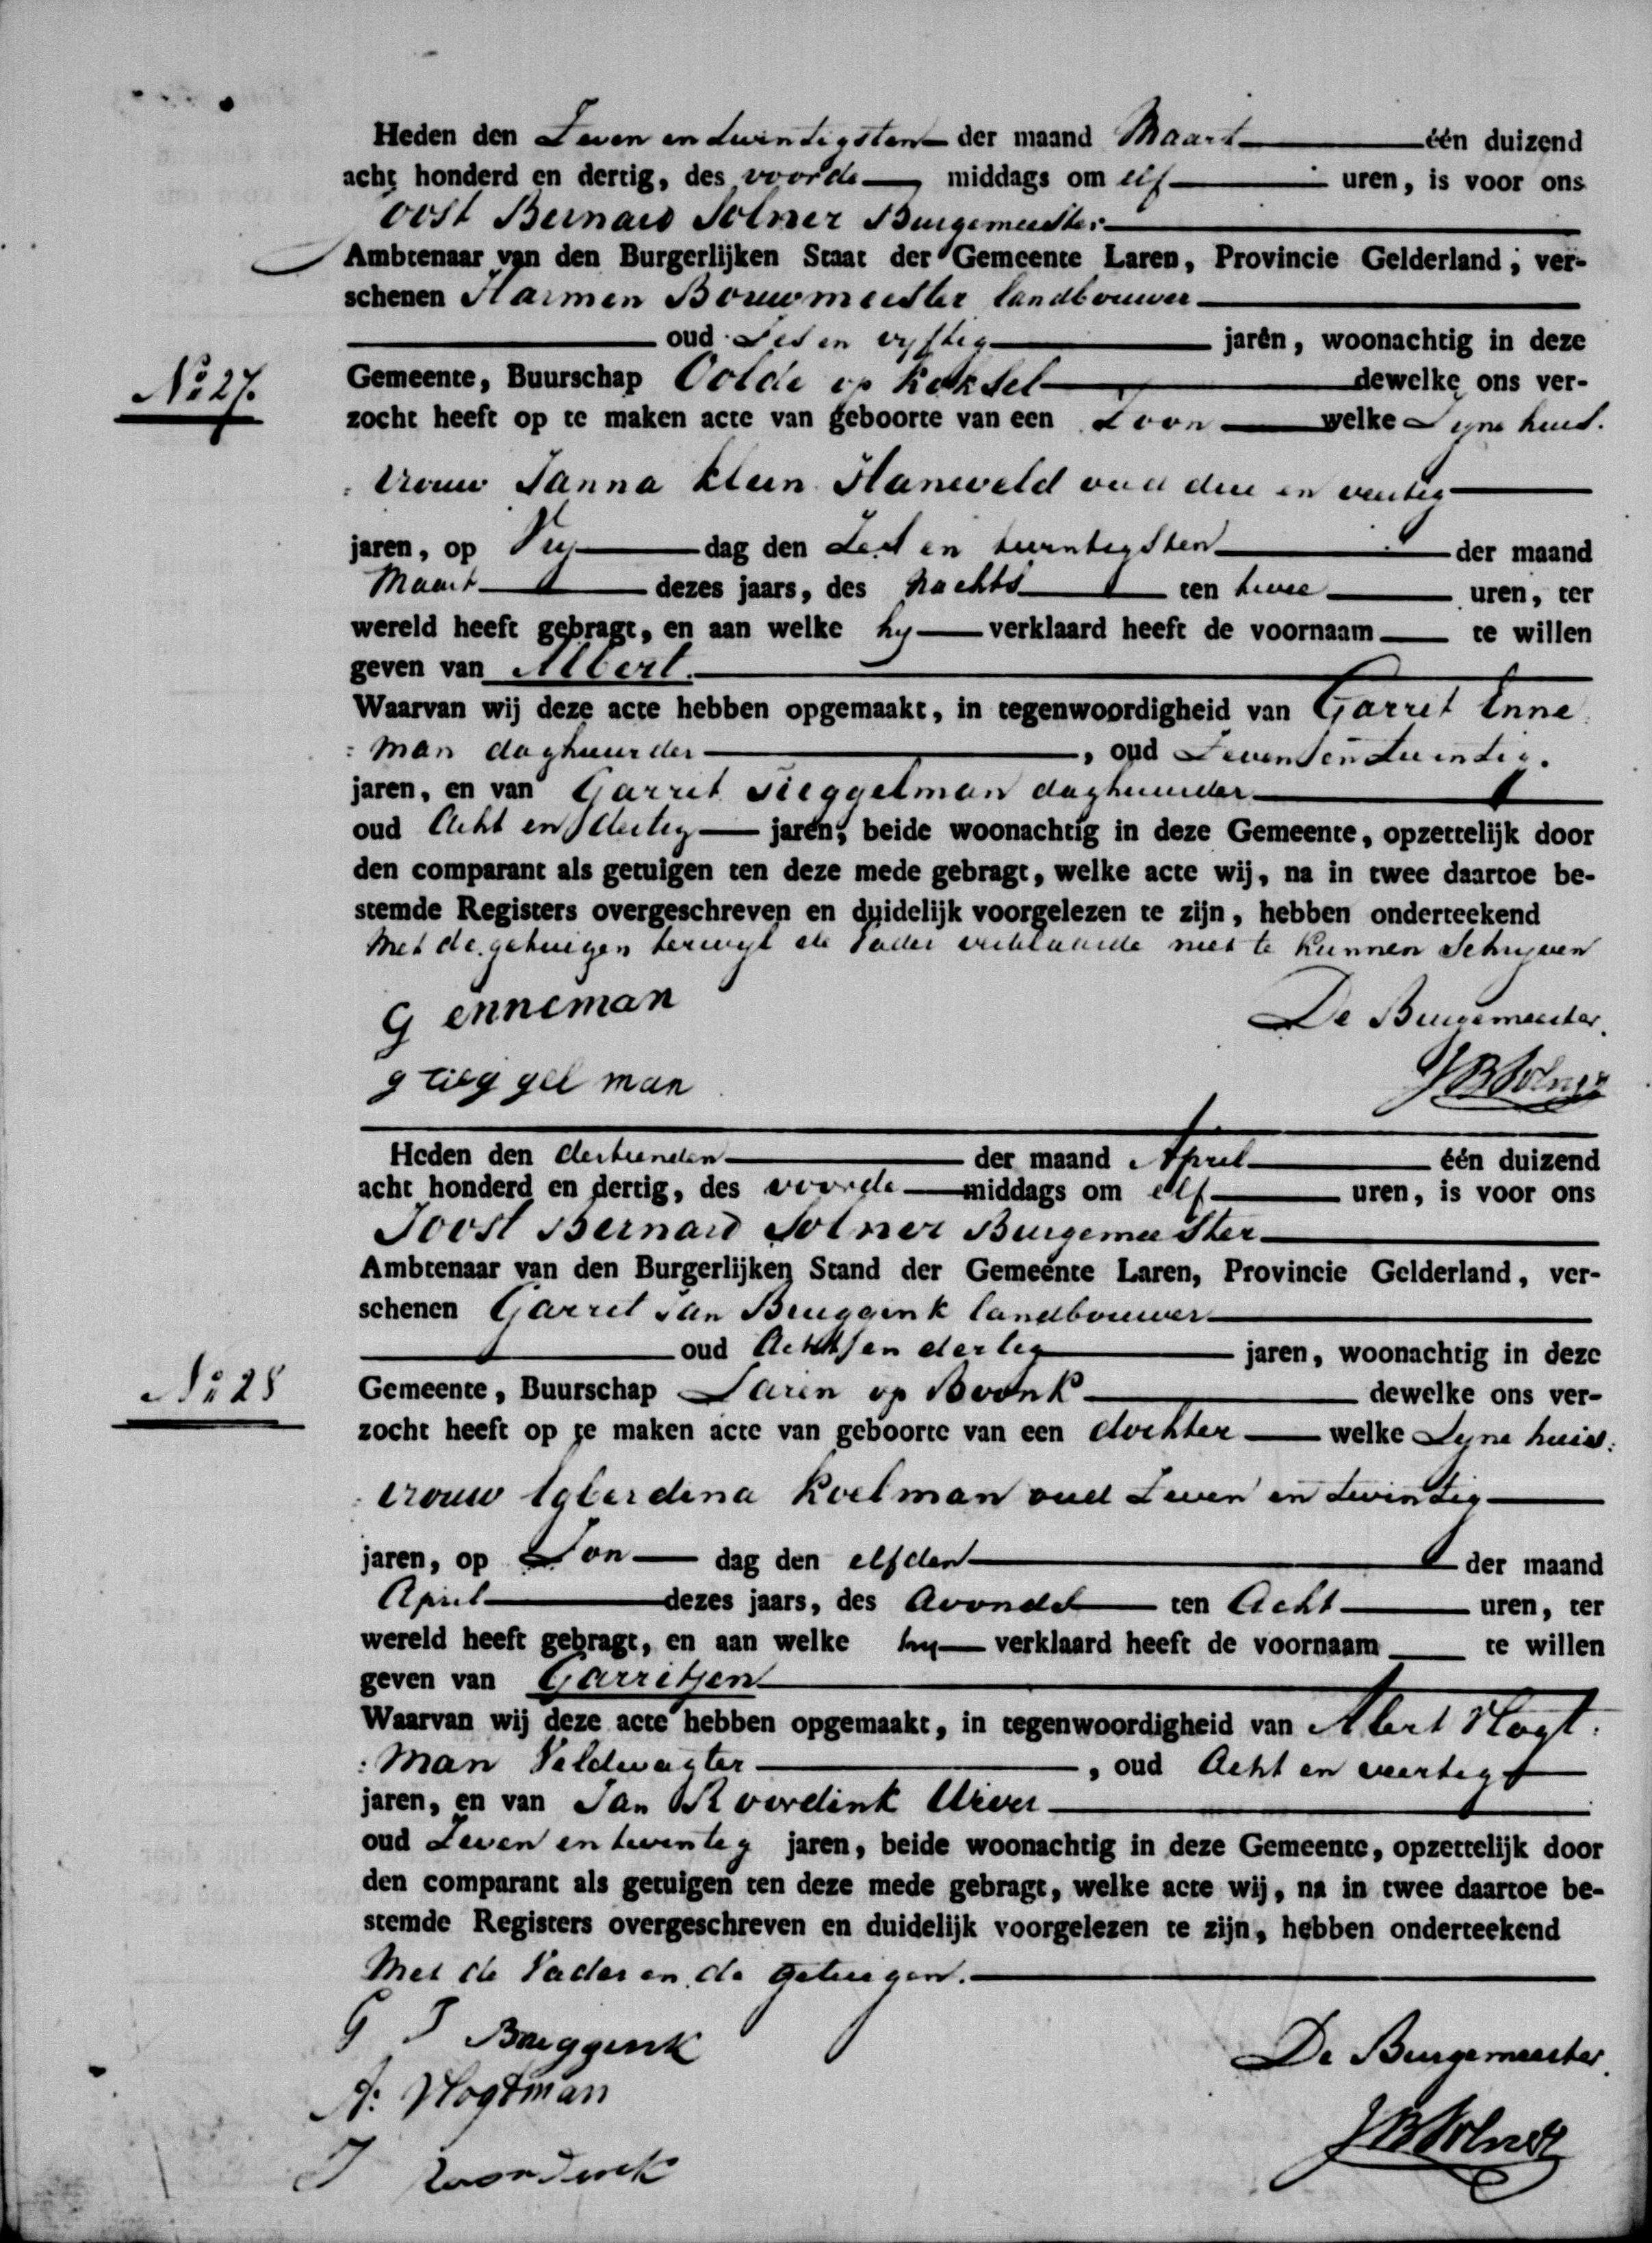 Heden den Zeven en twintigsten der maand Maart één duizend
acht honderd en dertig, des voorde middags om elf uren, is voor ons
Joost Bernard Solner Burgemeester
Ambtenaar van den Burgerlijken Staat der Gemeente Laren, Provincie Gelderland; ver-
schenen Harmen Bouwmeester landbouwer
oud Zes en vyftig jaren, woonachtig in deze
No 27.
Gemeente, Buurschap Oolde op Koksel dewelke ons ver-
zocht heeft op te maken acte van geboorte van een Zoon welke Zyne huis.
: vrouw Janna Klein Haneveld oud drie en veertig
jaren, op Vry dag den Zes en twintigsten der maand
Maart dezes jaars, des Nachts ten twee uren, ter
wereld heeft gebragt, en aan welke hy verklaard heeft de voornaam te willen
geven van Albert.
Waarvan wij deze acte hebben opgemaakt, in tegenwoordigheid van Garrit Enne
: man daghuurder, oud Zeven en twintig.
jaren, en van Garrit Tieggelman daghuurder
oud Acht en dertig jaren; beide woonachtig in deze Gemeente, opzettelijk door
den comparant als getuigen ten deze mede gebragt, welke acte wij, na in twee daartoe be-
stemde Registers overgeschreven en duidelijk voorgelezen te zijn, hebben onderteekend
Met de getuigen terwyl de Vader verklaarde niet te kunnen Schryven
G enneman
De Burgemeester.
g tieg gel man
JBSolner
Heden den dertienden der maand April één duizend
acht honderd en dertig, des voorde middags om elf uren, is voor ons
Joost Bernard Solner Burgemeester
Ambtenaar van den Burgerlijken Stand der Gemeente Laren, Provincie Gelderland, ver-
schenen Garrit Jan Bruggink landbouwer
oud Acht en dertig jaren, woonachtig in deze
No 28
Gemeente, Buurschap Laren op Boonk dewelke ons ver-
zocht heeft op te maken acte van geboorte van een dochter welke Zyne huis:
: vrouw Egberdina Koelman oud Zeven en twintig
jaren, op Zon dag den elfden der maand
April dezes jaars, des Avonds ten Acht uren, ter
wereld heeft gebragt, en aan welke hy verklaard heeft de voornaam te willen
geven van Garritjen
Waarvan wij deze acte hebben opgemaakt, in tegenwoordigheid van Albert Hogt:
: man Veldwagter, oud Acht en veertig
jaren, en van Jan Roordink Wever
oud Zeven en twintig jaren, beide woonachtig in deze Gemeente, opzettelijk door
den comparant als getuigen ten deze mede gebragt, welke acte wij, na in twee daartoe be-
stemde Registers overgeschreven en duidelijk voorgelezen te zijn, hebben onderteekend
Met de Vader en de getuigen.
G J Bruggink
De Burgemeester.
A: Hogtman
JBSolner
J roordink